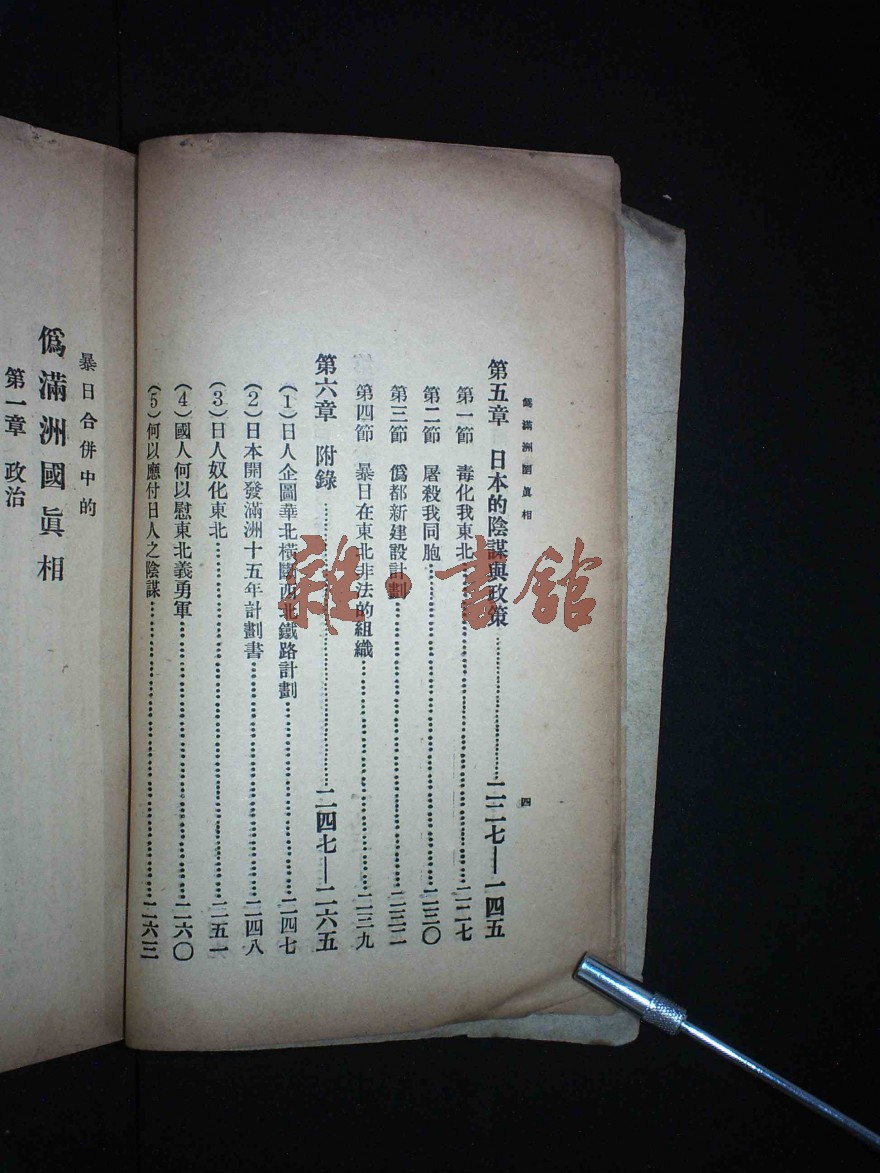 僞滿洲國眞相
四
第五章　日本的陰謀與政策……二二七——一四五
第一節　毒化我東北……二二七
第二節　屠殺我同胞……二三〇
第三節　僞都新建設計劃……二三二
第四節　暴日在東北非法的組織……二三九
第六章　附錄……二四七——二六五
(1)日人企圖華北橫斷西北鐵路計劃……二四七
(2)日本開發滿洲十五年計劃書……二四八
(3)日人奴化東北……二五一
(4)國人何以慰東北義勇軍……二六〇
(5)何以應付日人之陰謀……二六三
暴日合併中的
僞滿洲國眞相
第一章　政治
雜·書館